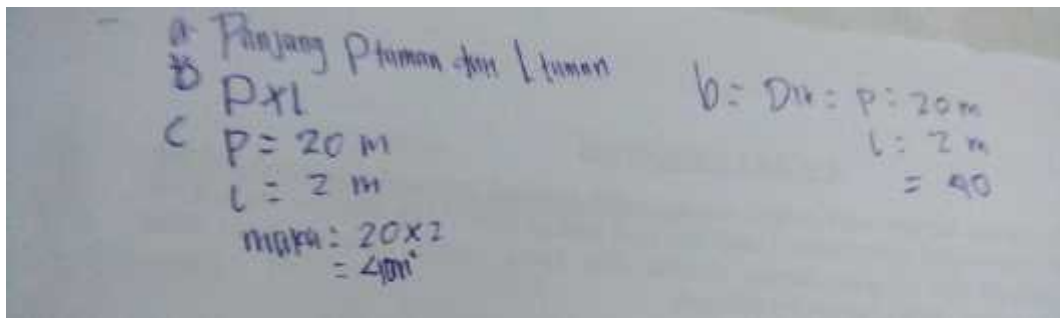 a. Panjang P taman dan l taman
b P x l
c P = 20 m
l = 2 m
maka : 20 x 2
= 40 m²
b = Dik = P = 20 m
l = 2 m
= 40